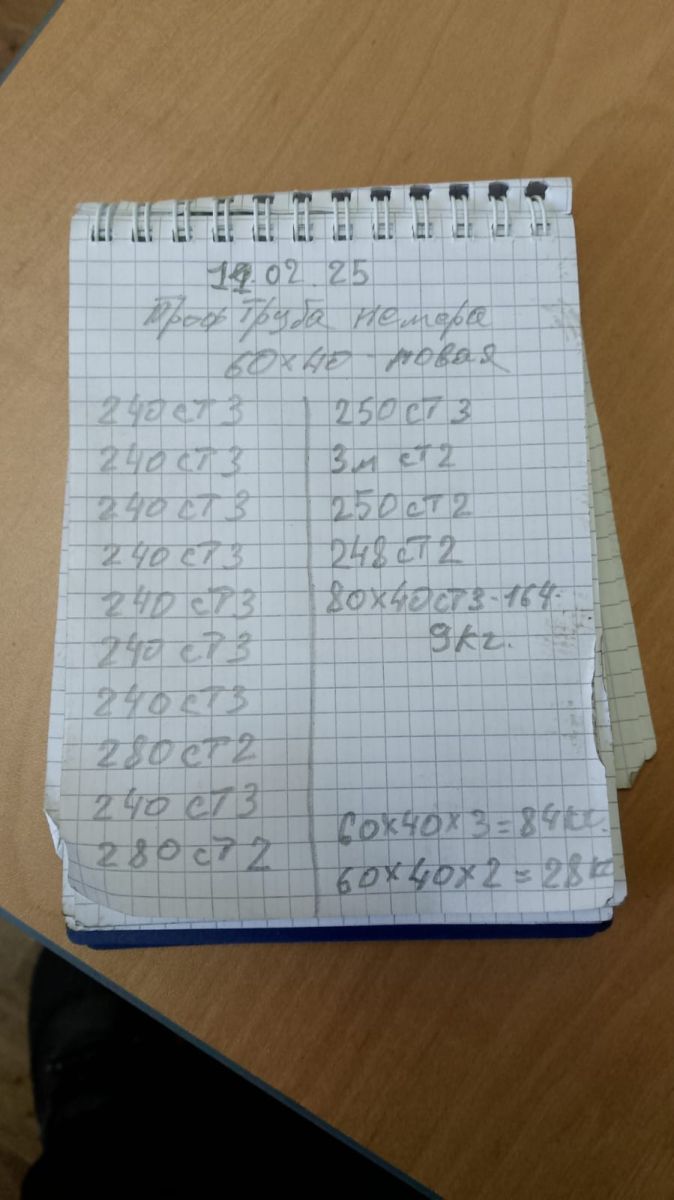 14.02.25
Проф Труба немера
60×40 - новая
240 ст 3
240 ст 3
240 ст 3
240 ст 3
240 ст 3
240 ст 3
240 ст 3
280 ст 2
240 ст 3
280 ст 2
250 ст 3
3м ст 2
250 ст 2
248 ст 2
80×40 ст 3 - 164-
9кг.
60×40×3 = 84кг.
60×40×2 = 28к